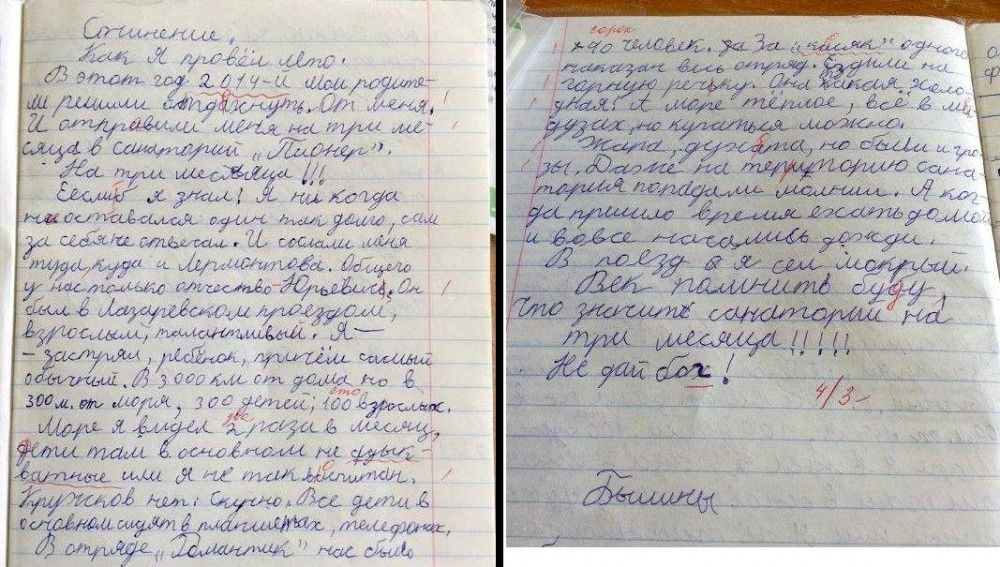 Сочинение.
Как Я провёл лето.
В этот год 2014-й мои родите-
ли решили отдохнуть. От меня.
И отправили меня на три ме-
сяца в санаторий „Пионер".
На три месяца!!!
Еслиб я знал! Я ни когда
не оставался один так долго, сам
за себя не отвечал. И сослали меня
туда, куда и Лермонтова. Общего
у нас только отчество-Юрьевич. Он
был в Лазаревском проездом,
взрослый, талантливый. Я —
- застрял, ребёнок, причём самый
обычный. В 3000 км от дома но в
300 м. от моря, 300 детей, 100 взрослых.
сто
Море я видел 2 раза в месяц,
два
дети там в основном не адык-
ватные или я не так воспитан.
Кружков нет. Скучно. Все дети в
основном сидят в планшетах, телефонах,
В отряде „Романтик" нас было
сорок
40 человек. За „касяк" одного
наказан весь отряд. Ездили на
горную речку. Она такая холо-
дная! А море тёплое, всё в ме
дузах, но купаться можно.
Жара, духата, но были и гро-
зы. Даже на территорию сана-
тория попадали молнии. А ког-
да пришло время ехать домой
и вовсе начались дожди.
В поезд я сел мокрый.
Век помнить буду,
что значит санаторий на
три месяца!!!!!
Не дай бог!
4/3-
Былины